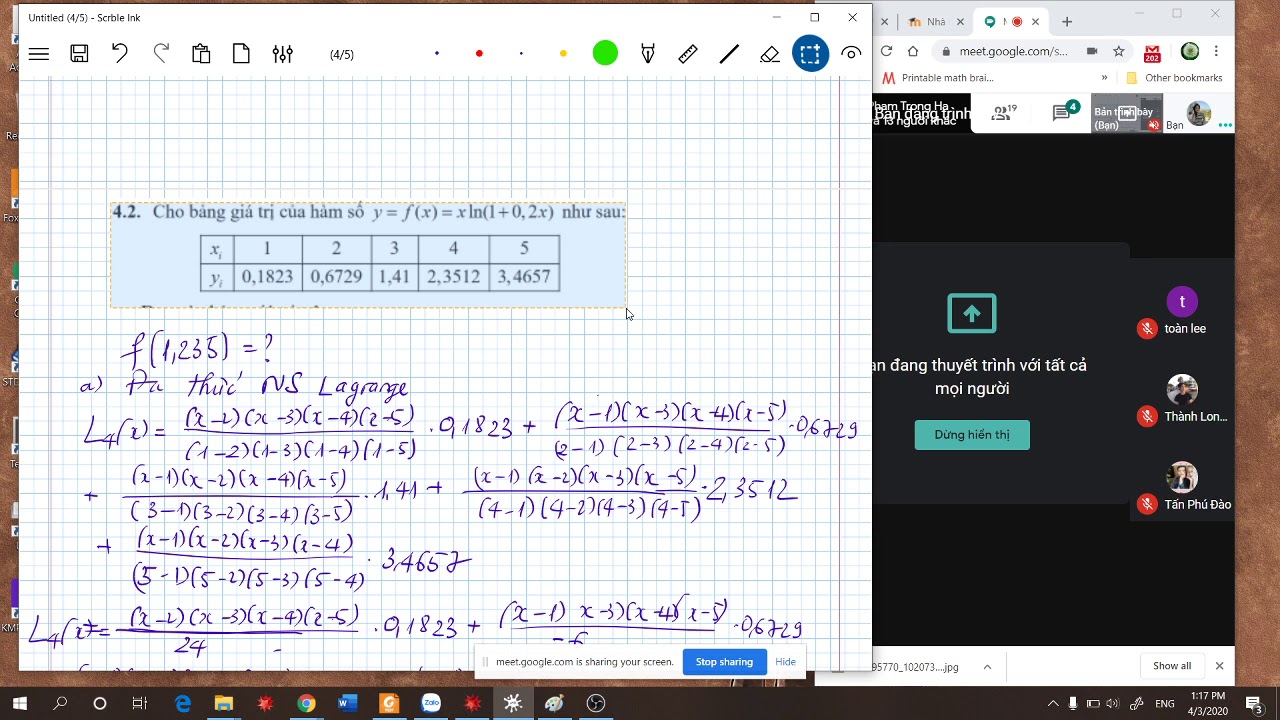 Untitled (4/5) - Scrble Ink
(4/5)
4.2. Cho bảng giá trị của hàm số y = f(x) = x ln(1+0,2x) như sau:
xᵢ 1 2 3 4 5
yᵢ 0,1823 0,6729 1,41 2,3512 3,4657
f(1,235) = ?
a) Đa thức NS Lagrange
L₄(x) = (x-2)(x-3)(x-4)(x-5) / (1-2)(1-3)(1-4)(1-5) . 0,1823 + (x-1)(x-3)(x-4)(x-5) / (2-1)(2-3)(2-4)(2-5) . 0,6729
+ (x-1)(x-2)(x-4)(x-5) / (3-1)(3-2)(3-4)(3-5) . 1,41 + (x-1)(x-2)(x-3)(x-5) / (4-1)(4-2)(4-3)(4-5) . 2,3512
+ (x-1)(x-2)(x-3)(x-4) / (5-1)(5-2)(5-3)(5-4) . 3,4657
L₄(x) = (x-2)(x-3)(x-4)(x-5) / 24 . 0,1823 + (x-1) x-3)(x-4)(x-5) / -6 . 0,6729
meet.google.com is sharing your screen. Stop sharing Hide
Nhâ
M
meet.google.com/s...
202
Printable math brai...
»
Other bookmarks
Phạm Trọng Hạ
và 13 người khác
Bạn đang trình
19
4
Bản trình bày
(Bạn)
Bạn
ạn đang thuyết trình với tất cả
mọi người
Dừng hiển thị
t
toàn lee
Thành Lon...
Tấn Phú Đào
95770_102073....jpg
Show all
Zalo
ENG
1:17 PM
4/3/2020
3